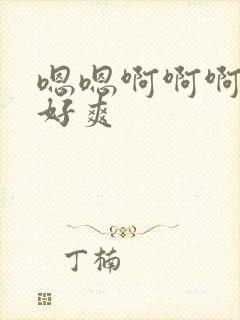 嗯嗯啊啊啊
好爽
丁楠